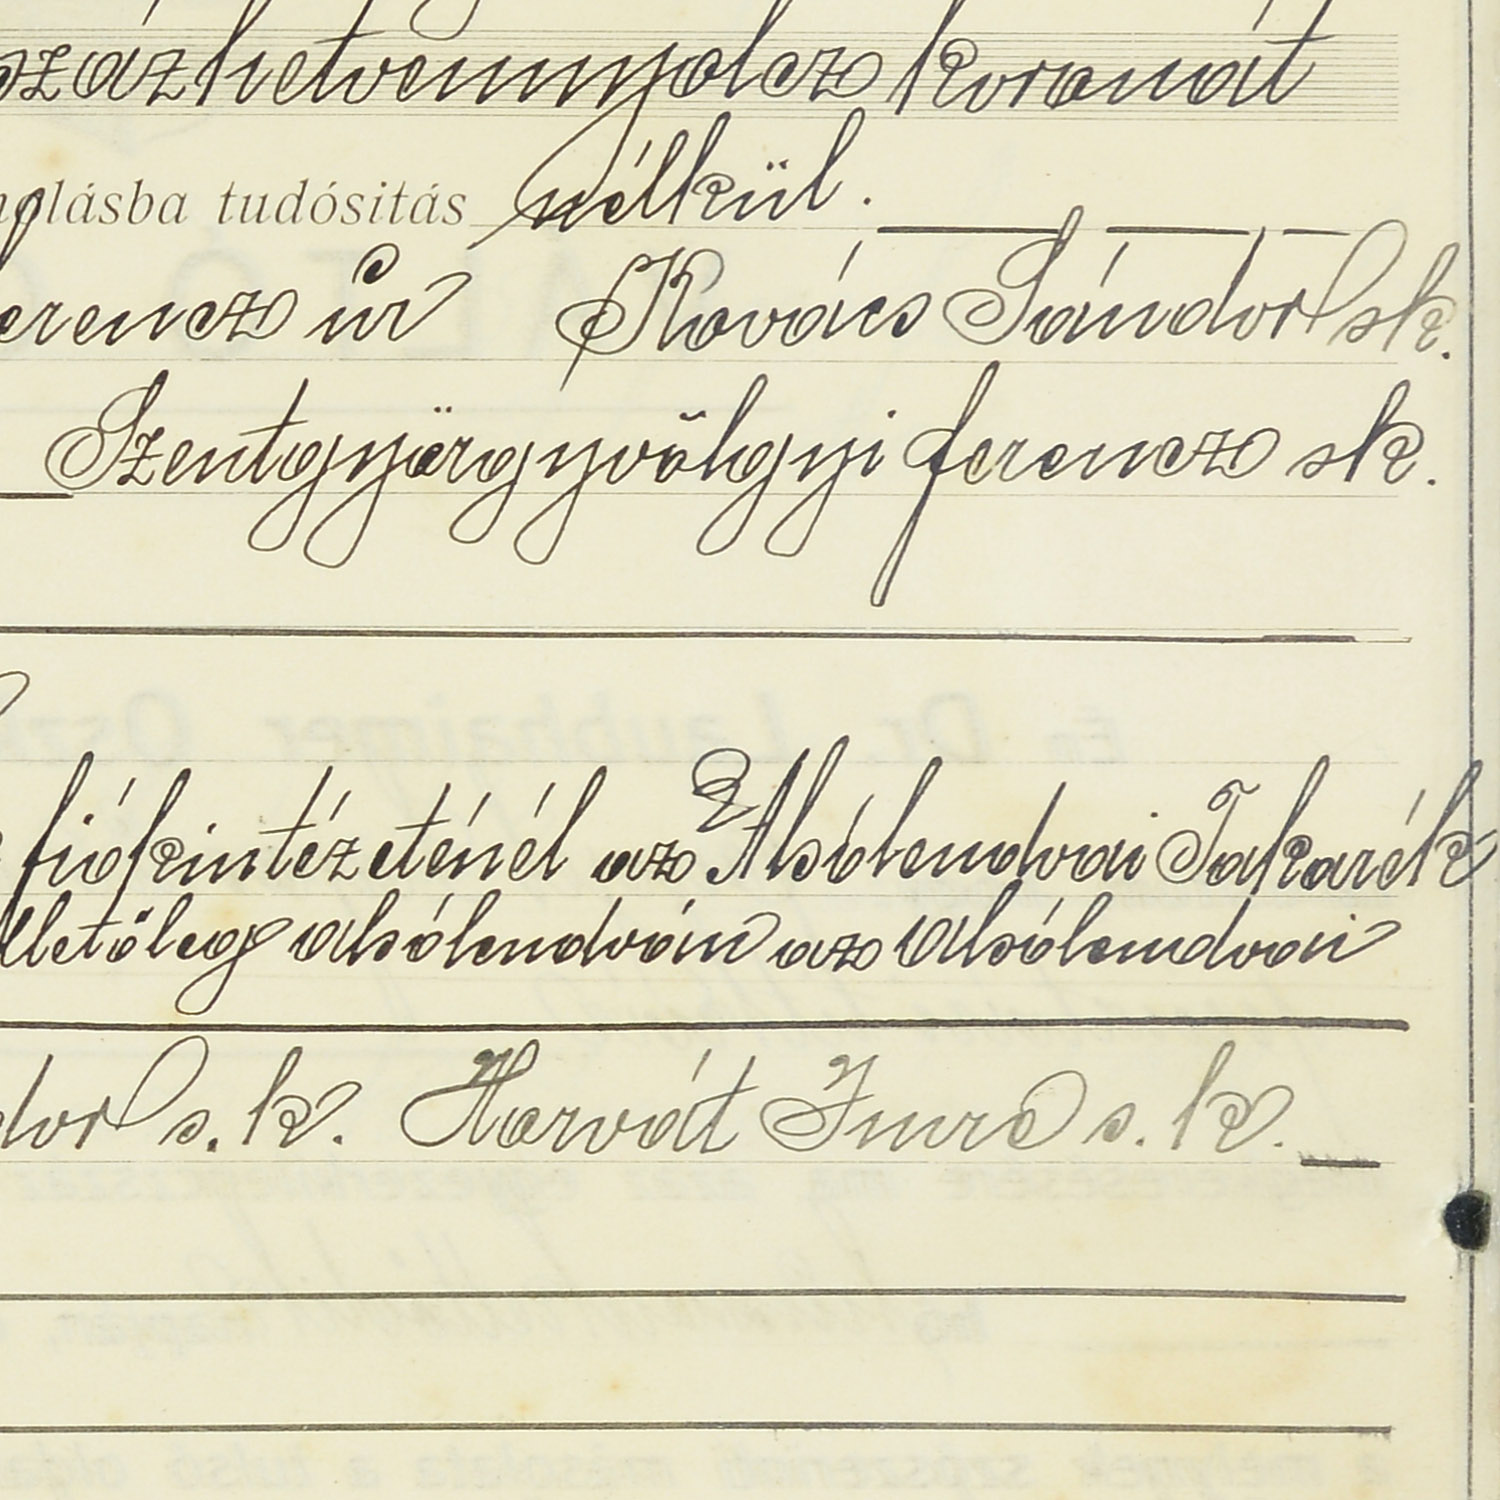 százhetvennyolcz koronát
tudósitás nélkül.
Ferencz úr Kovács Sándor sk.
Szentgyörgyvölgyi ferencz sk.
fiókintézeténél az Alsólendvai Takarék
illetőleg alsólendván az alsólendvai
s. k. Horvát Imre s. k.